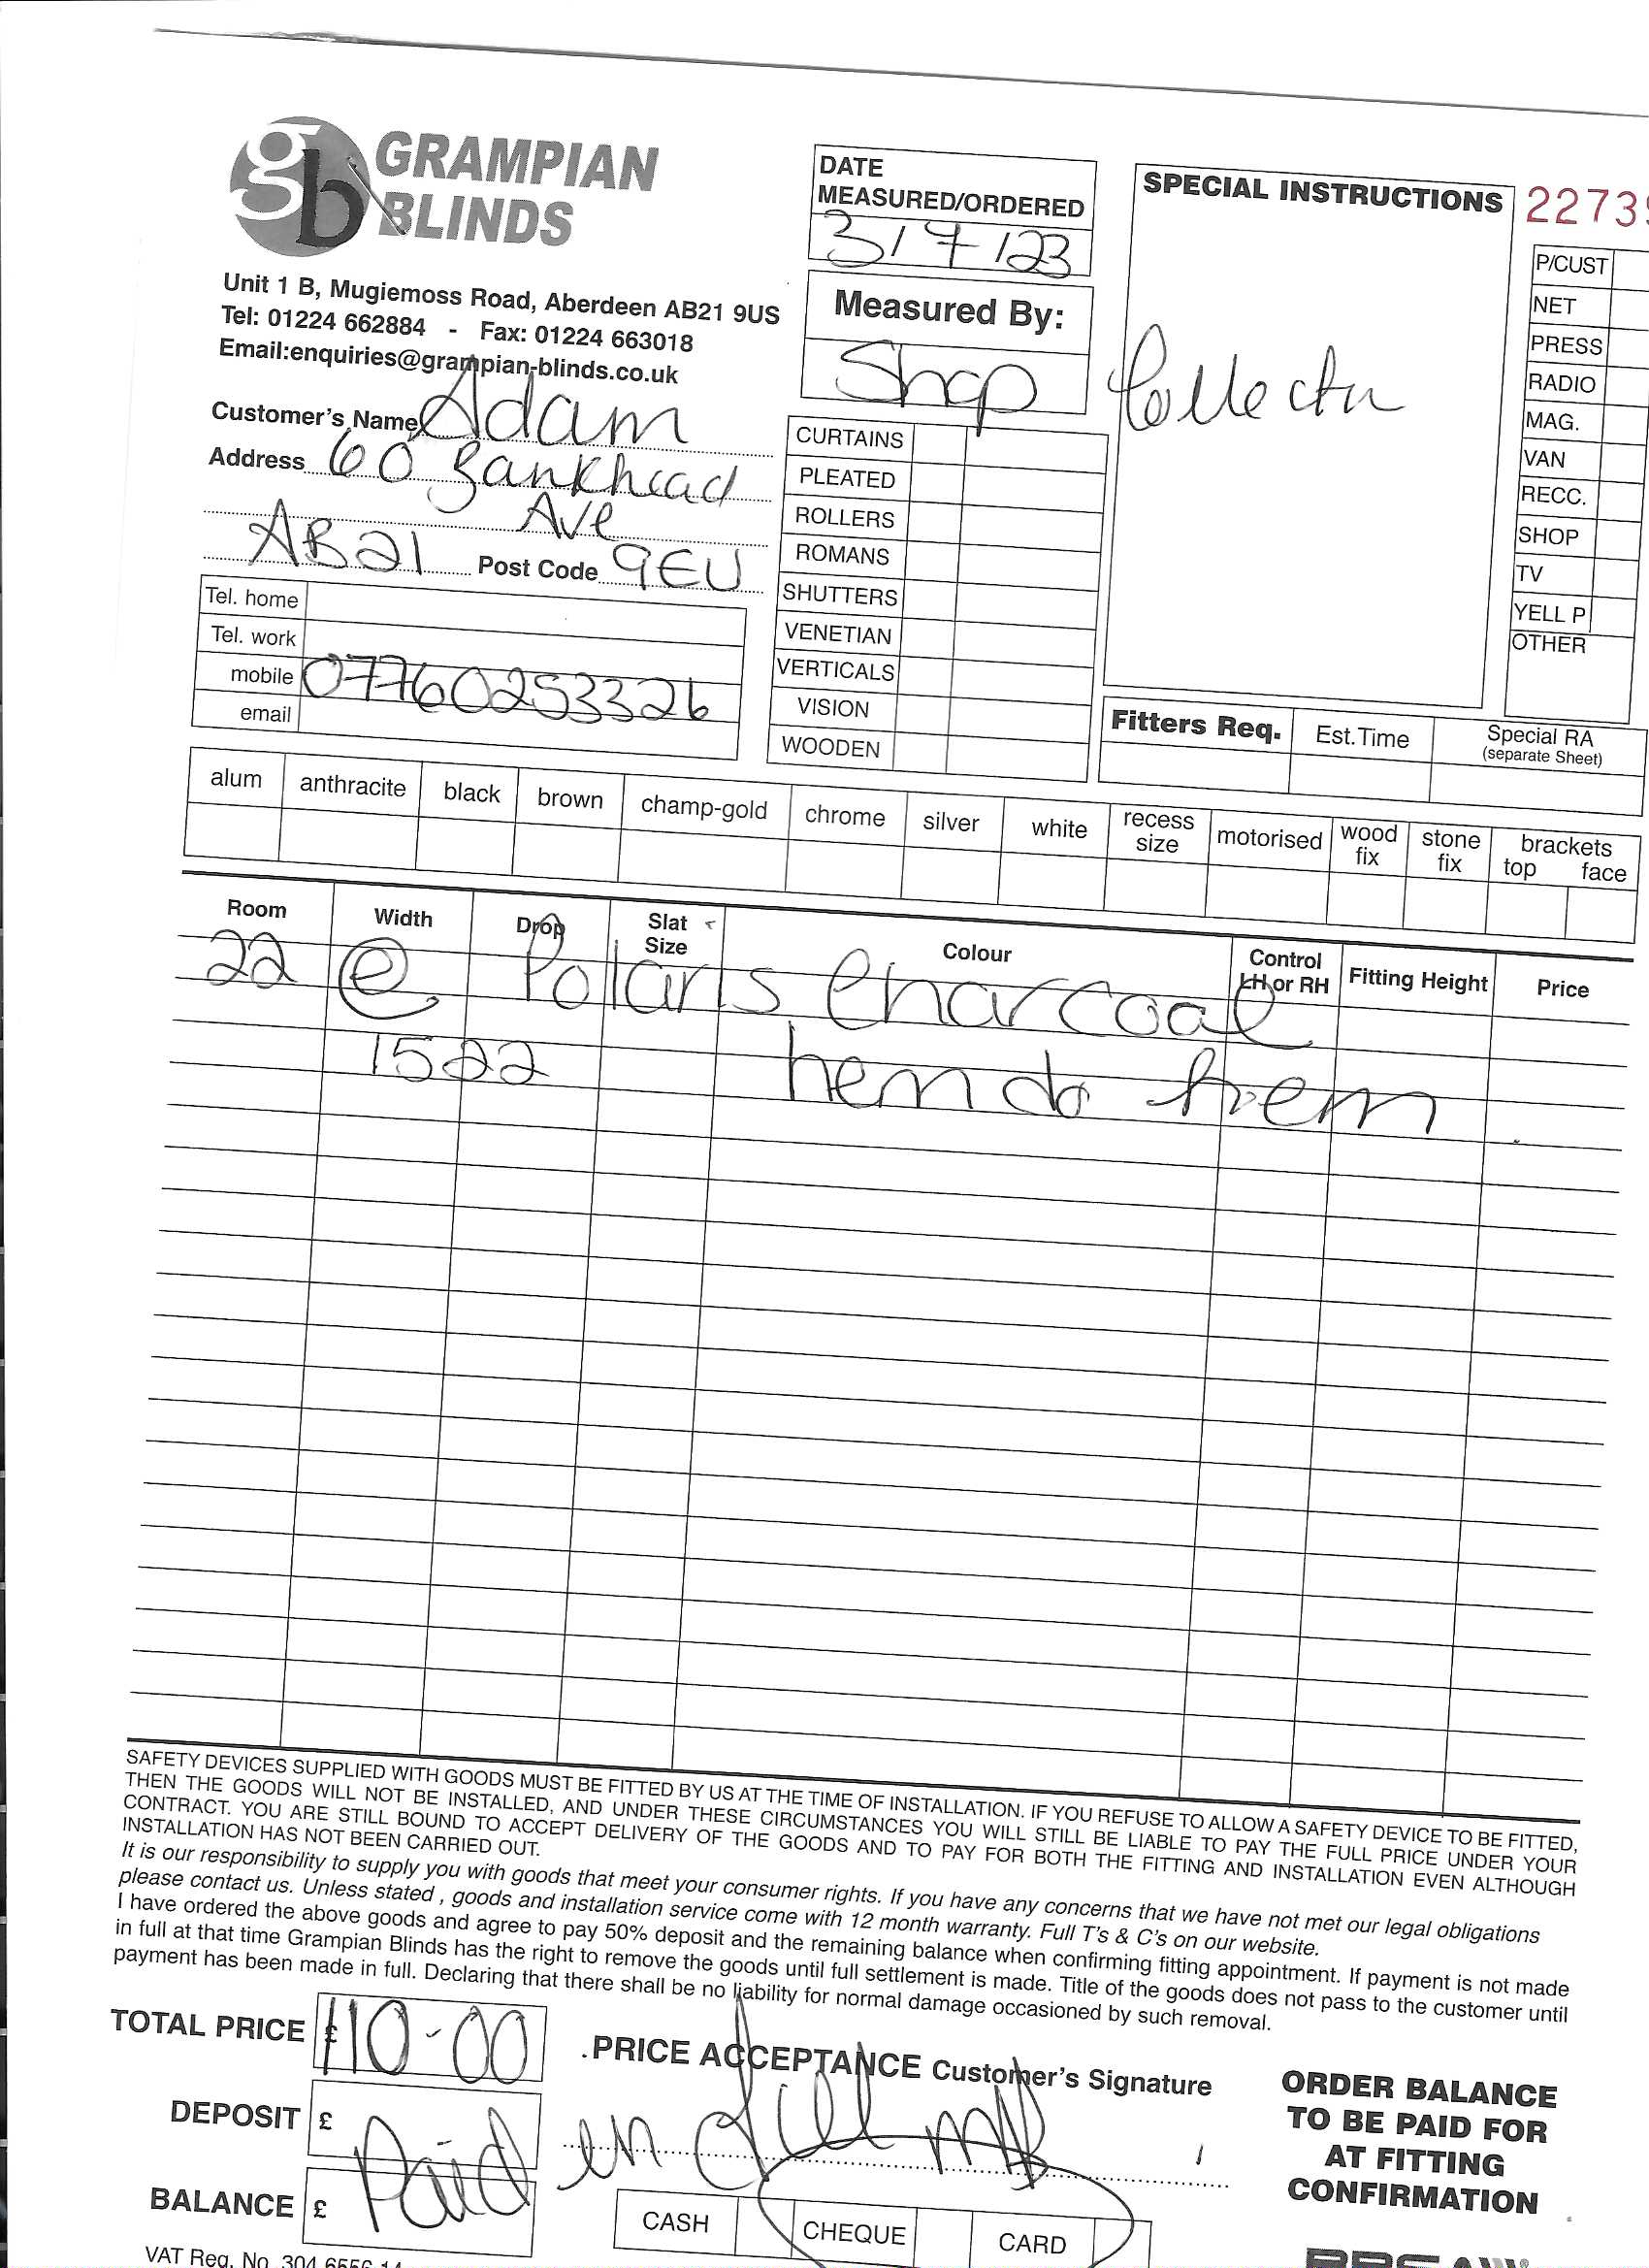 gb GRAMPIAN
BLINDS
Unit 1 B, Mugiemoss Road, Aberdeen AB21 9US
Tel: 01224 662884 - Fax: 01224 663018
Email:enquiries@grampian-blinds.co.uk
Customer's Name Adam
Address 60 Bankhead
Ave
AB21 Post Code 9EU
Tel. home
Tel. work
mobile 07760253326
email
DATE
MEASURED/ORDERED
3/7/23
Measured By:
Shop
CURTAINS
PLEATED
ROLLERS
ROMANS
SHUTTERS
VENETIAN
VERTICALS
VISION
WOODEN
SPECIAL INSTRUCTIONS
Collectn
2273
P/CUST
NET
PRESS
RADIO
MAG.
VAN
RECC.
SHOP
TV
YELL P
OTHER
Fitters Req. Est.Time Special RA
(separate Sheet)
alum anthracite black brown champ-gold chrome silver white recess size motorised wood fix stone fix brackets
top face
Room Width Drop Slat Size Colour Control LH or RH Fitting Height Price
22 @ Polaris Charcoal
1522 hem to hem
SAFETY DEVICES SUPPLIED WITH GOODS MUST BE FITTED BY US AT THE TIME OF INSTALLATION. IF YOU REFUSE TO ALLOW A SAFETY DEVICE TO BE FITTED,
THEN THE GOODS WILL NOT BE INSTALLED, AND UNDER THESE CIRCUMSTANCES YOU WILL STILL BE LIABLE TO PAY THE FULL PRICE UNDER YOUR
CONTRACT. YOU ARE STILL BOUND TO ACCEPT DELIVERY OF THE GOODS AND TO PAY FOR BOTH THE FITTING AND INSTALLATION EVEN ALTHOUGH
INSTALLATION HAS NOT BEEN CARRIED OUT.
It is our responsibility to supply you with goods that meet your consumer rights. If you have any concerns that we have not met our legal obligations
please contact us. Unless stated , goods and installation service come with 12 month warranty. Full T's & C's on our website.
I have ordered the above goods and agree to pay 50% deposit and the remaining balance when confirming fitting appointment. If payment is not made
in full at that time Grampian Blinds has the right to remove the goods until full settlement is made. Title of the goods does not pass to the customer until
payment has been made in full. Declaring that there shall be no liability for normal damage occasioned by such removal.
TOTAL PRICE £ 110-00
PRICE ACCEPTANCE Customer's Signature
DEPOSIT £
Paid in full
BALANCE £
CASH CHEQUE CARD
ORDER BALANCE
TO BE PAID FOR
AT FITTING
CONFIRMATION
VAT Reg. No. 304